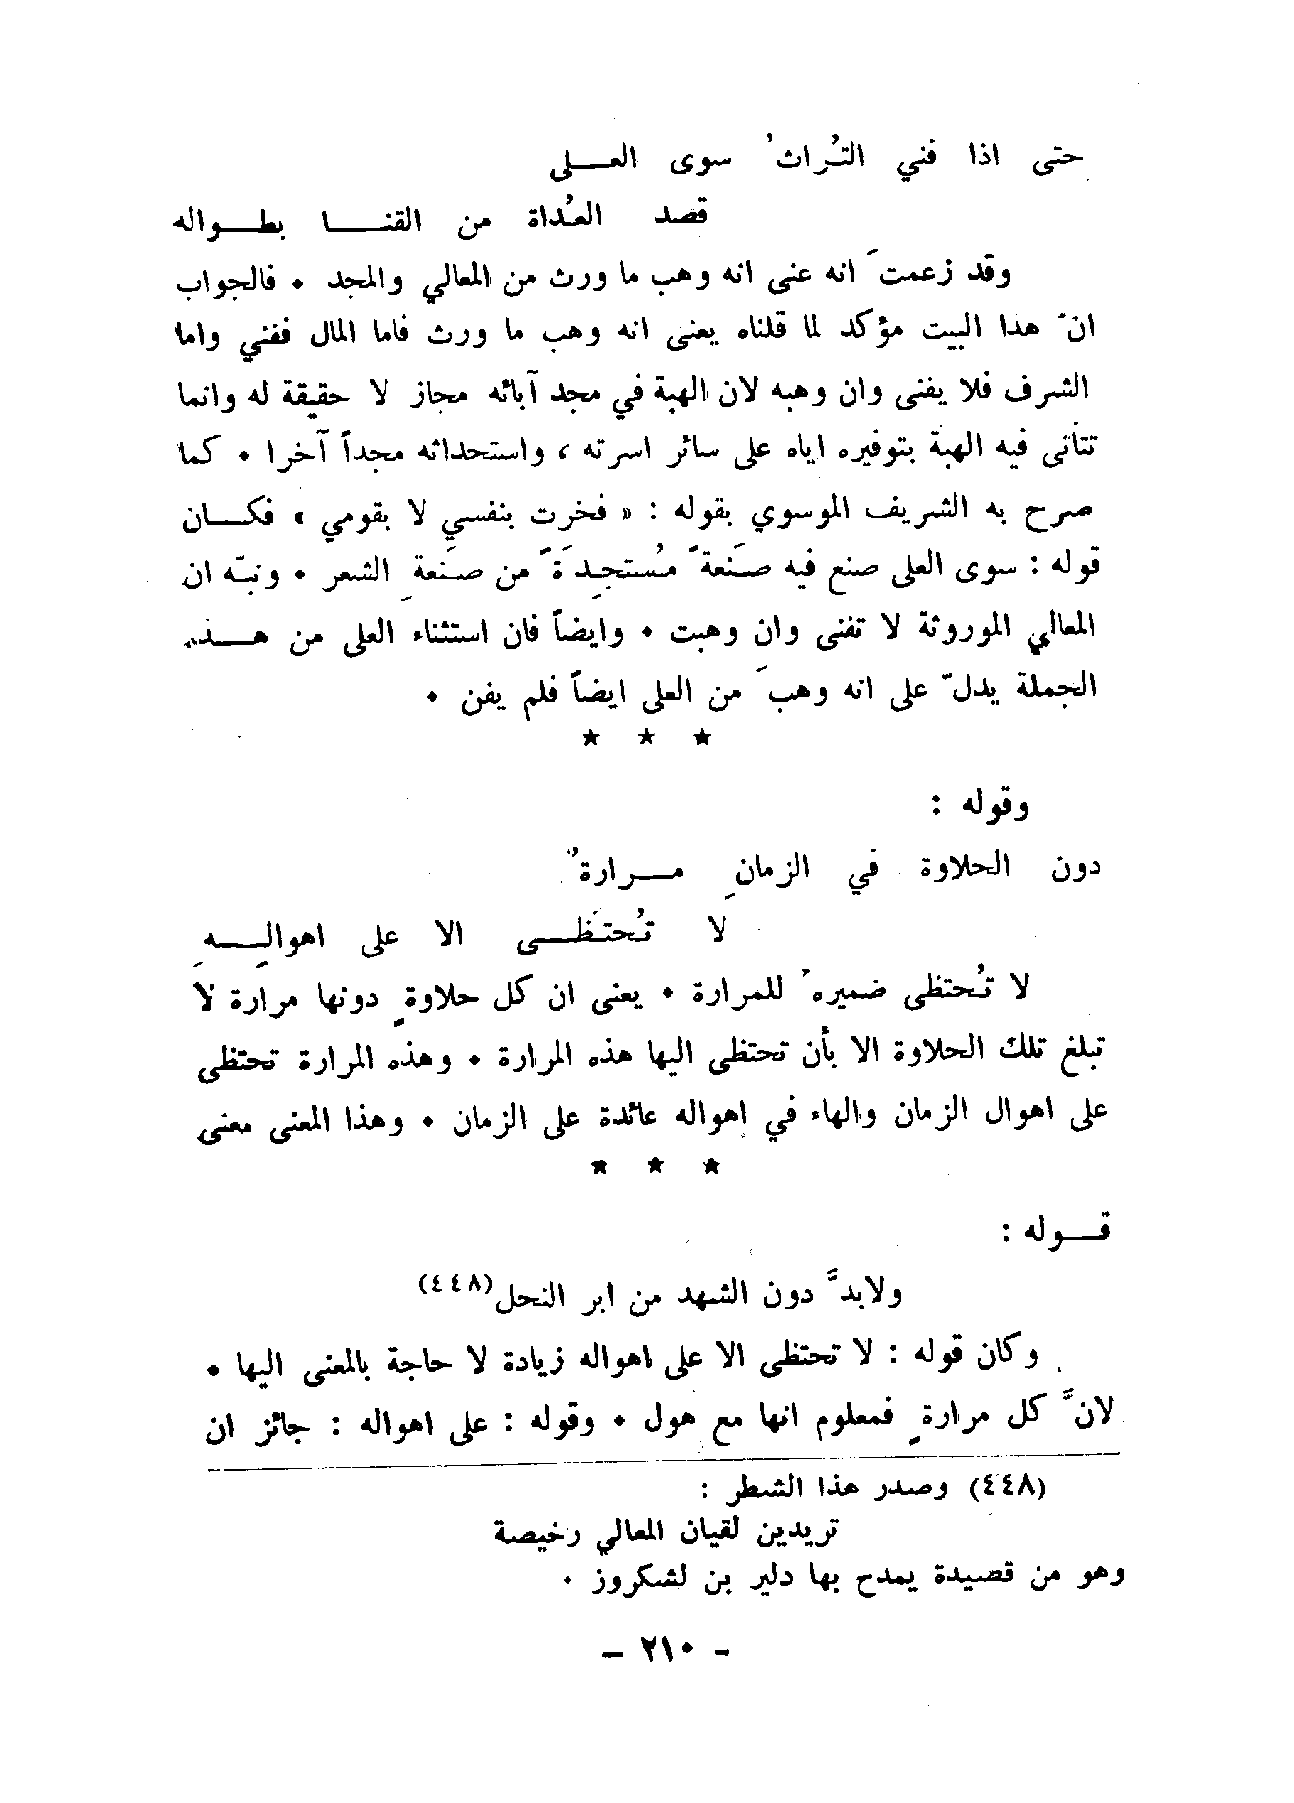 حتى اذا فني التُراثُ سوى العـــلى
قصد العُداة من القنـــا بطـــواله
وقد زعمتَ انه عنى انه وهب ما ورث من المعالي والمجد . فالجواب
انّ هذا البيت مؤكد لما قلناه يعنى انه وهب ما ورث فاما المال ففني واما
الشرف فلا يفنى وان وهبه لان الهبة في مجد آبائه مجاز لا حقيقة له وانما
تتأتى فيه الهبة بتوفيره اياه على سائر اسرته ، واستحداثه مجداً آخرا . كما
صرح به الشريف الموسوي بقوله : « فخرت بنفسي لا بقومي » فكـــان
قوله : سوى العلى صنع فيه صَنعةً مُستجِدَةً من صنَعةِ الشعر . ونبّه ان
المعالي الموروثة لا تفنى وان وهبت . وايضاً فان استثناء العلى من هـــذه
الجملة يدلّ على انه وهبَ من العلى ايضاً فلم يفن .
★ ★ ★
وقوله :
دون الحلاوة في الزمانِ مـــرارةٌ
لا تُحتَظـــى الا على اهوالِـــهِ
لا تُحتظى ضميرهُ للمرارة . يعنى ان كل حلاوةٍ دونها مرارة لا
تبلغ تلك الحلاوة الا بأن تحتظى اليها هذه المرارة . وهذه المرارة تحتظى
على اهوال الزمان والهاء في اهواله عائدة على الزمان . وهذا المعنى معنى
★ ★ ★
قـــوله :
ولابدَّ دون الشهد من ابر النحل(٤٤٨)
وكان قوله : لا تحتظى الا على اهواله زيادة لا حاجة بالمعنى اليها .
لانَّ كل مرارةٍ فمعلوم انها مع هول . وقوله : على اهواله : جائز ان
(٤٤٨) وصدر هذا الشطر :
تريدين لقيان المعالي رخيصة
وهو من قصيدة يمدح بها دلير بن لشكروز .
- ٢١٠ -